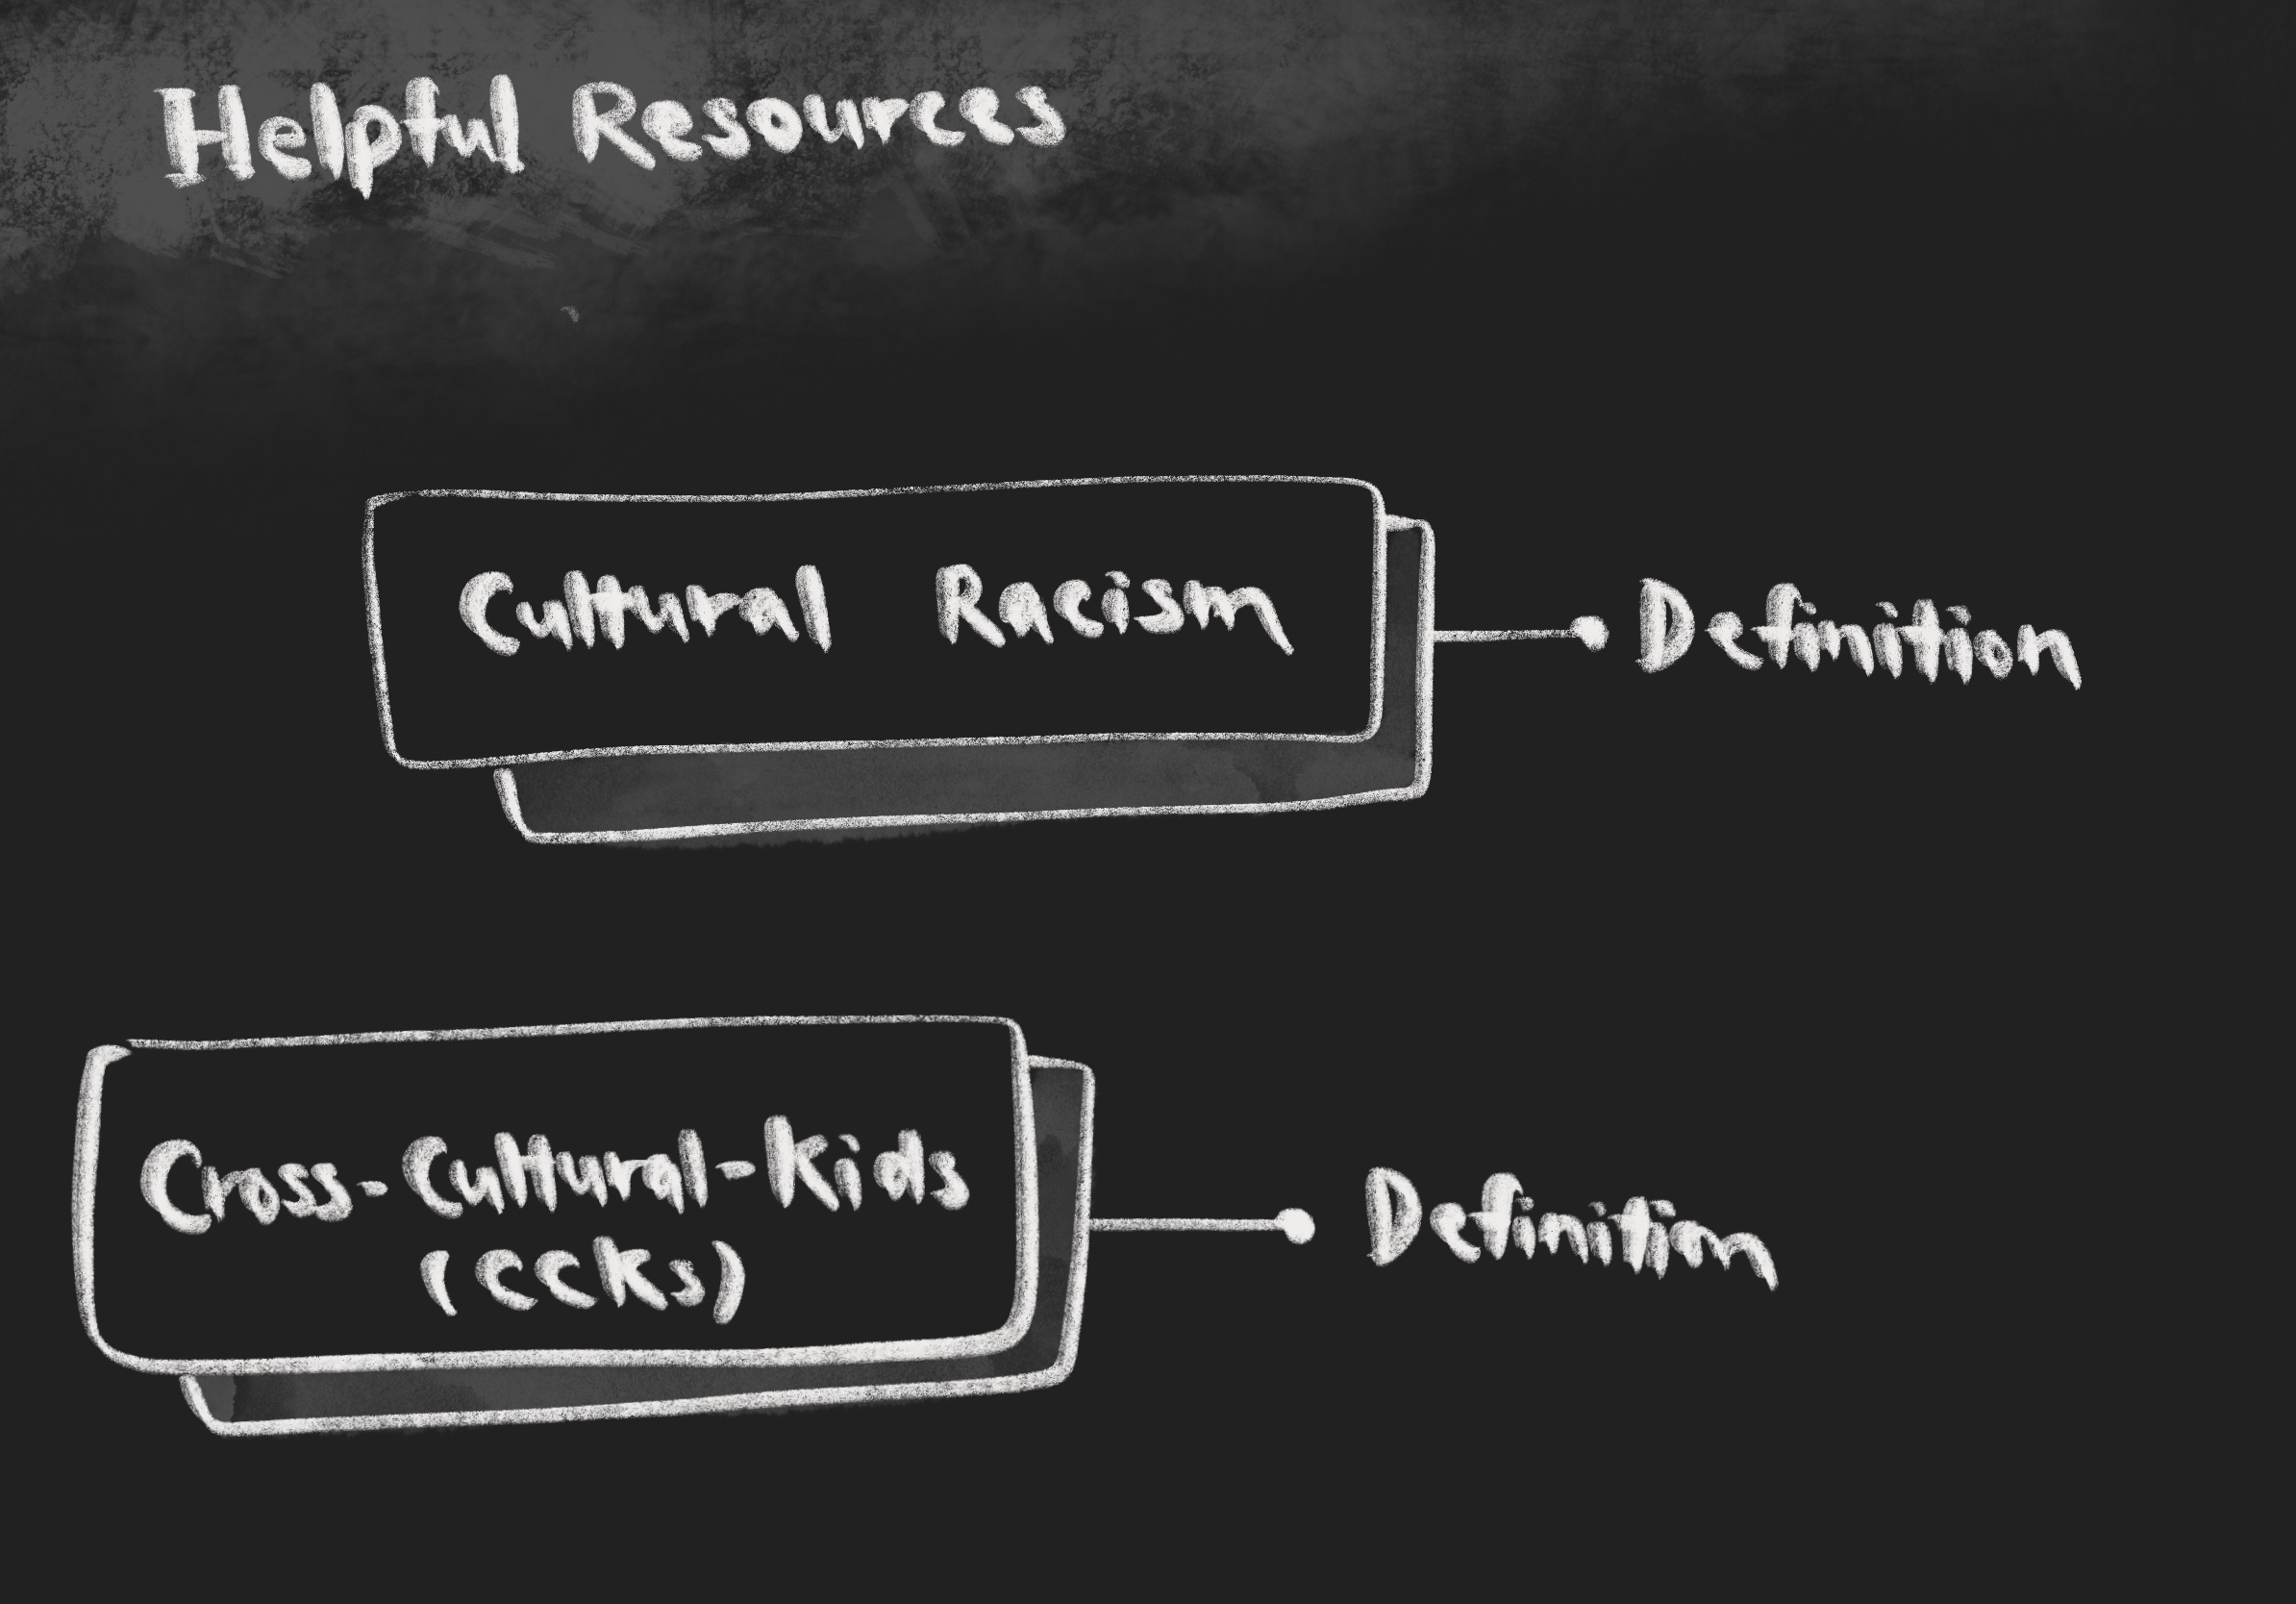 Helpful Resources
Cultural Racism
Definition
Cross-Cultural-Kids
(CCKs)
Definition